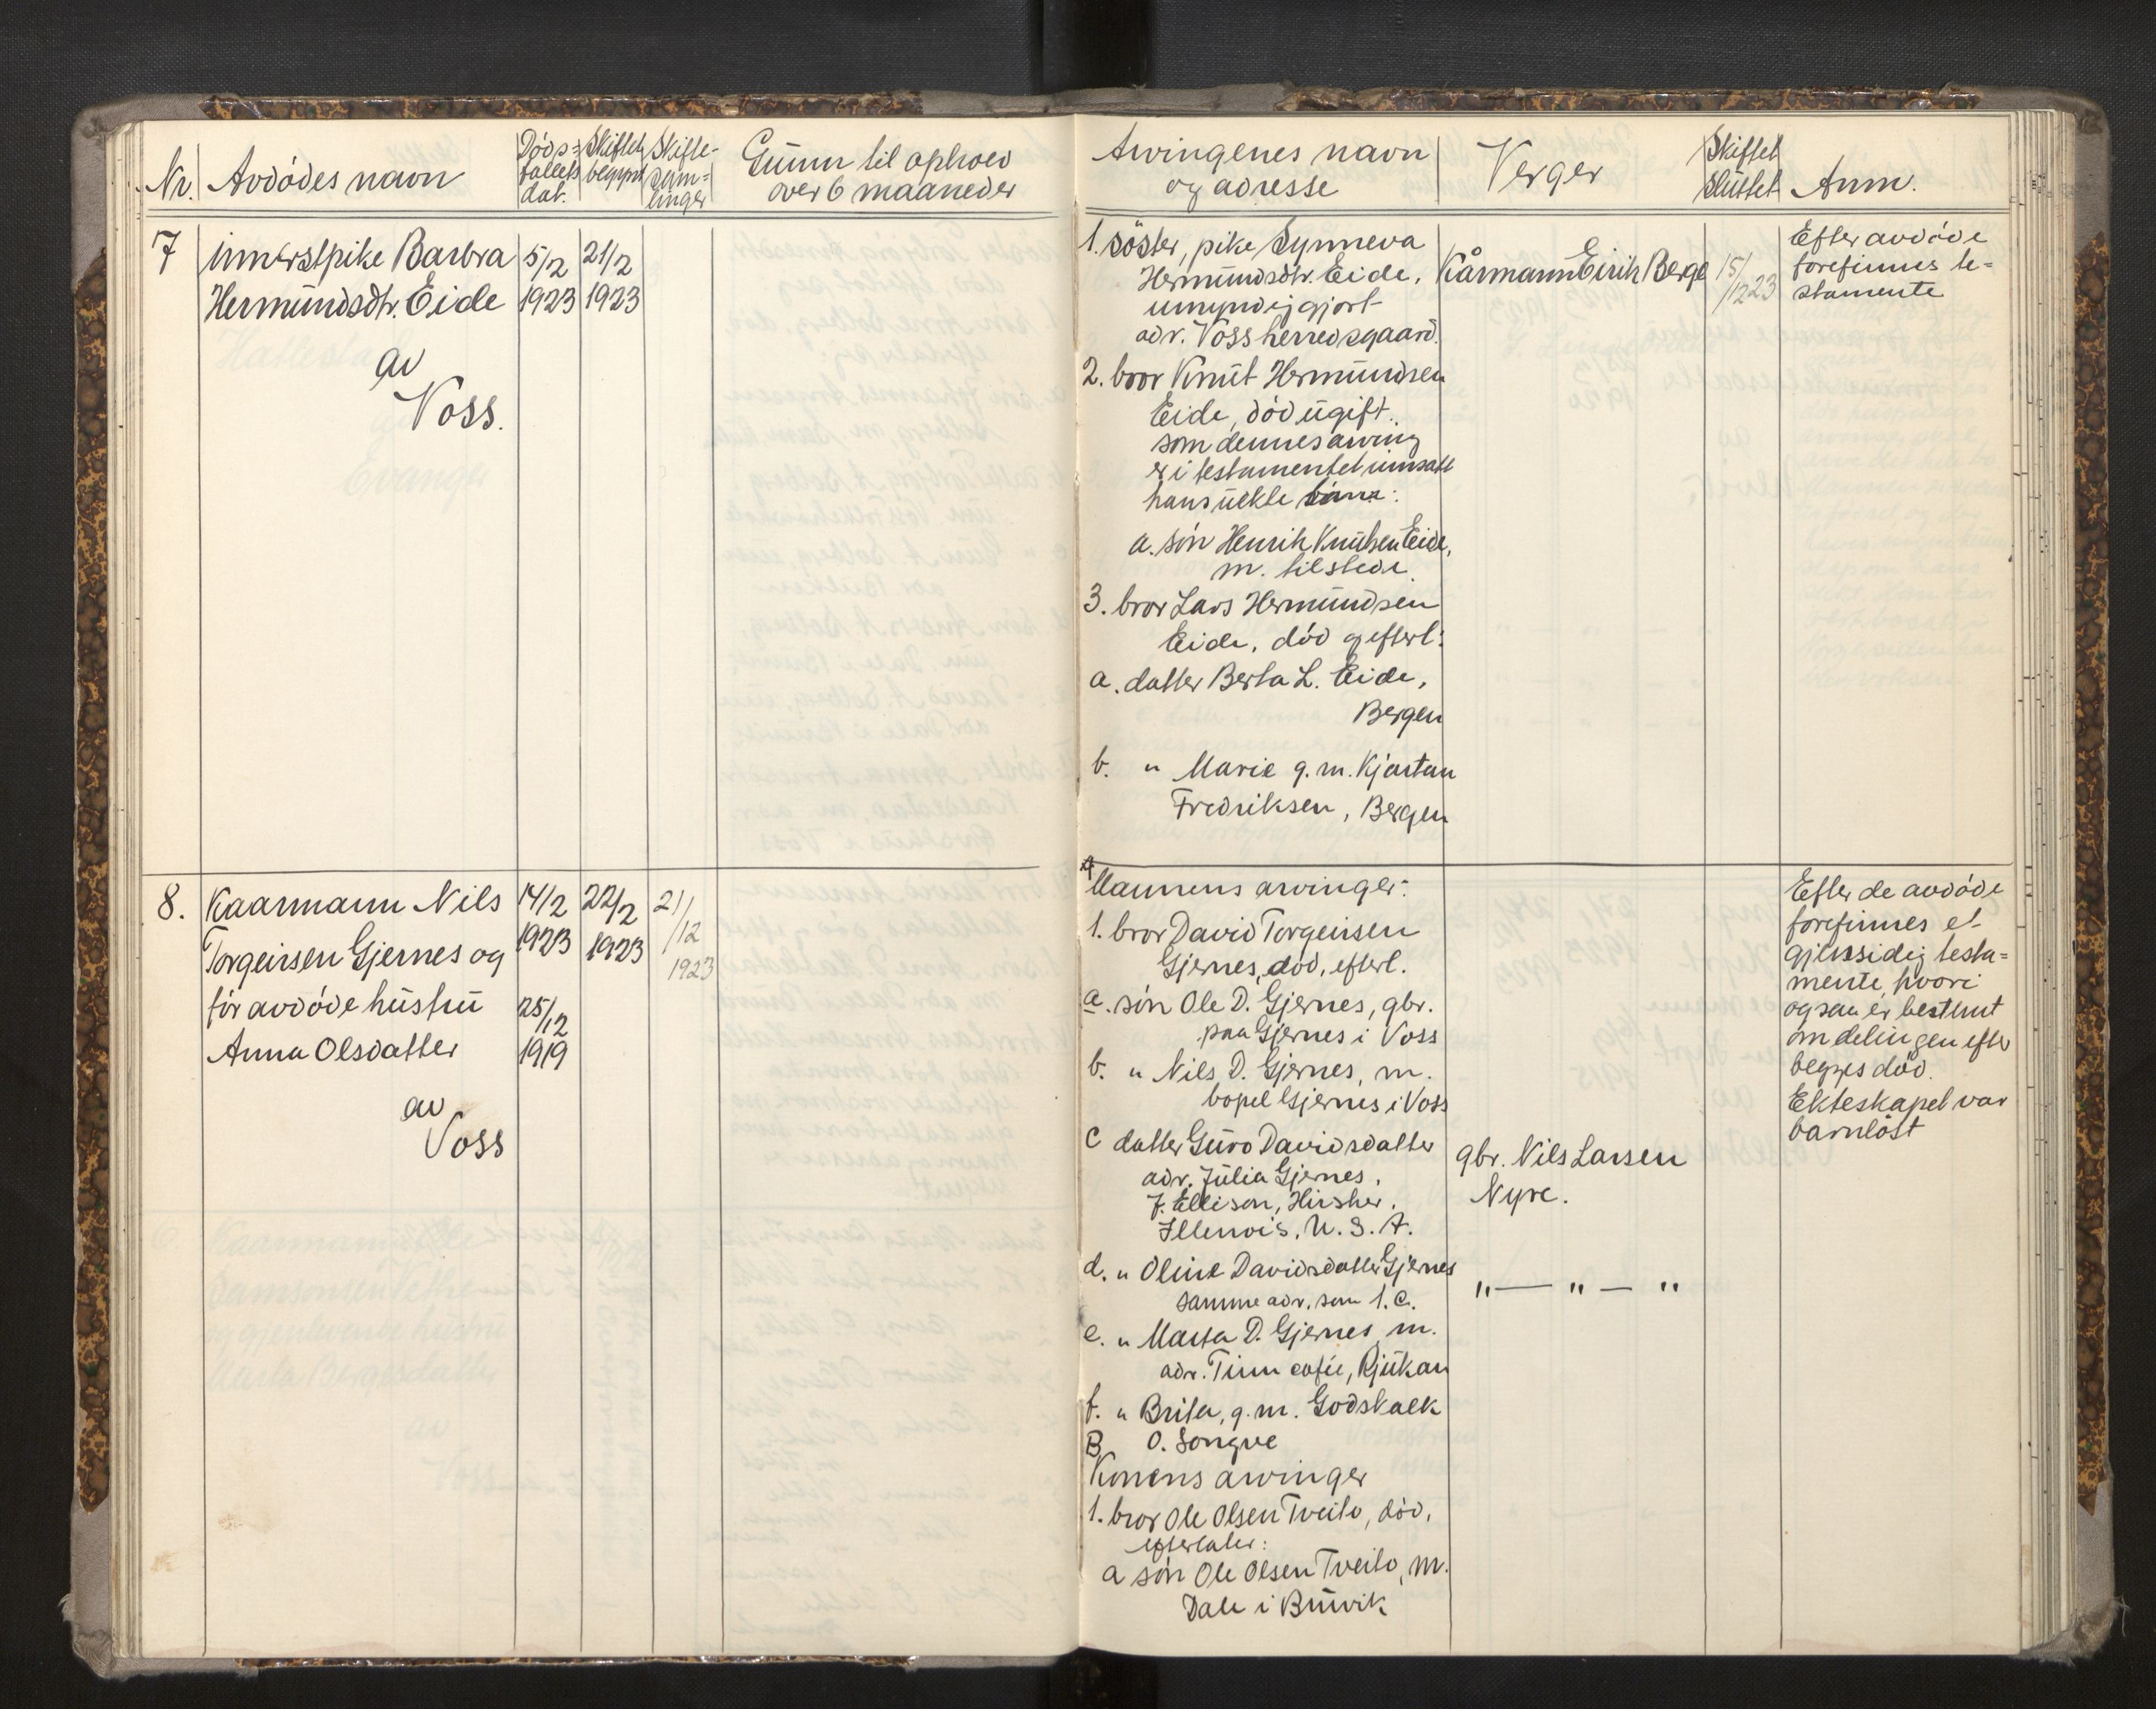 Nr.
Avdødes navn
Døds=
fallets
dat.
Skiftet
begynt
Skifte-
sam=
linger
Grunn til ophold
over 6 maaneder
7
innerstpike Barbra
Hermundsdtr. Eide
av
Voss.
5/2
1923
21/2
1923
8.
Kaarmann Nils
Torgeirsen Gjernes og
før avdøde hustru
Anna Olsdatter
av
Voss
14/2
1923
25/12
1919
22/2
1923
21/
/12
1923
Arvingenes navn
og adresse
Verger
Skiftet
sluttet
Anm.
1. søster, pike Synneva
Hermundsdtr. Eide,
umyndiggjort
adr. Voss herredsgaard.
2. bror Knut Hermundsen
Eide, død ugift.
som dennes arving
er i testamentet innsatt
hans uekte
a. søn Henrik Knutsen Eide,
m. tilstede.
3. bror Lars Hermundsen
Eide, død og efterl:
a. datter Berta L. Eide,
Bergen
b. " Marie g. m. Kjartan
Fredriksen, Bergen
Kårmann Eirik Berge
15/
/12 23
Efter avdøde
forefinnes te=
stamente
A
Mannens arvinger:
1. bror David Torgeirsen
Gjernes, død, efterl.
a. søn Ole D. Gjernes, gbr.
paa Gjernes i Voss
b. " Nils D. Gjernes, m.
bopel Gjernes i Voss
c datter Guro Davidsdatter
adr. Julia Gjernes,
J. Ellison, Hirsher,
Illenois, U. S. A.
d. " Oline Davidsdatter Gjernes
samme adr. som 1. c.
e. " Marta D. Gjernes, m.
adr. Tinn cafée, Rjukan
f. " Brita, g. m. Godskalk
O. Songve
B
Konens arvinger
1. bror Ole Olsen Tveito, død,
efterlater:
a søn Ole Olsen Tveito, m.
Dale i Bruvik
gbr. Nils Larsen
Nyre.
" — " — "
Efter de avdøde
forefinnes et
gjensidig testa=
mente, hvori
ogsaa er bestemt
om delingen efter
begges død.
Ekteskapet var
barnløst